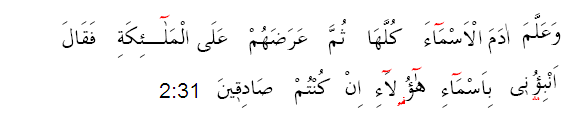 وَعَلَّمَ اٰدَمَ الْاَسْمَآءَ كُلَّهَا ثُمَّ عَرَضَهُمْ عَلَى الْمَلٰٓئِكَةِ فَقَالَ
اَنْۢبِـُٔوْنِیْ بِاَسْمَآءِ هٰٓؤُلَآءِ اِنْ كُنْتُمْ صَادِقٖينَ 2:31